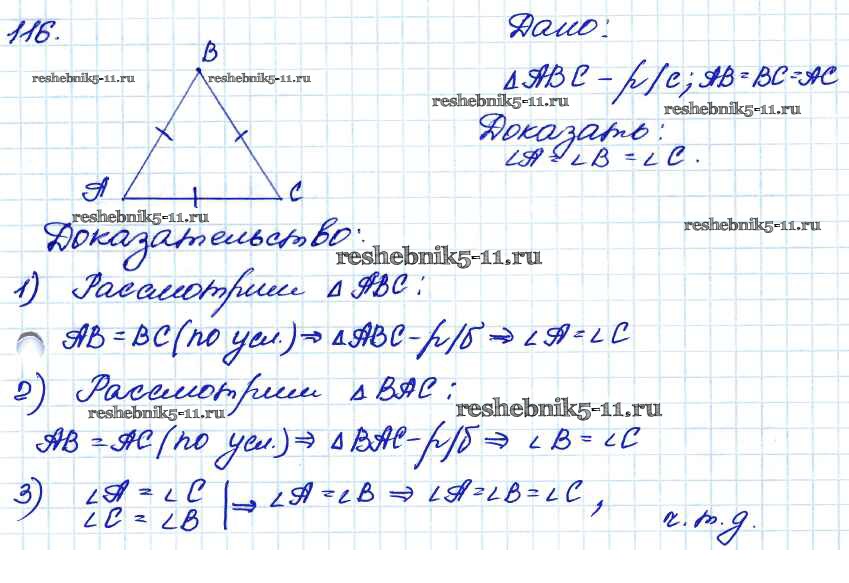 116.
Дано:
B
reshebnik5-11.ru reshebnik5-11.ru
∆ABC – р/с; AB=BC=AC
reshebnik5-11.ru reshebnik5-11.ru
Доказать:
∠A=∠B=∠C.
A C
reshebnik5-11.ru reshebnik5-11.ru
Доказательство:
reshebnik5-11.ru
1) Рассмотрим ∆ABC:
AB=BC(по усл.)⇒ ∆ABC–р/б ⇒ ∠A=∠C
2) Рассмотрим ∆BAC:
reshebnik5-11.ru reshebnik5-11.ru
AB=AC(по усл.)⇒ ∆BAC–р/б ⇒ ∠B=∠C
3) ∠A=∠C | ⇒ ∠A=∠B ⇒ ∠A=∠B=∠C,
∠C=∠B
ч.т.д.